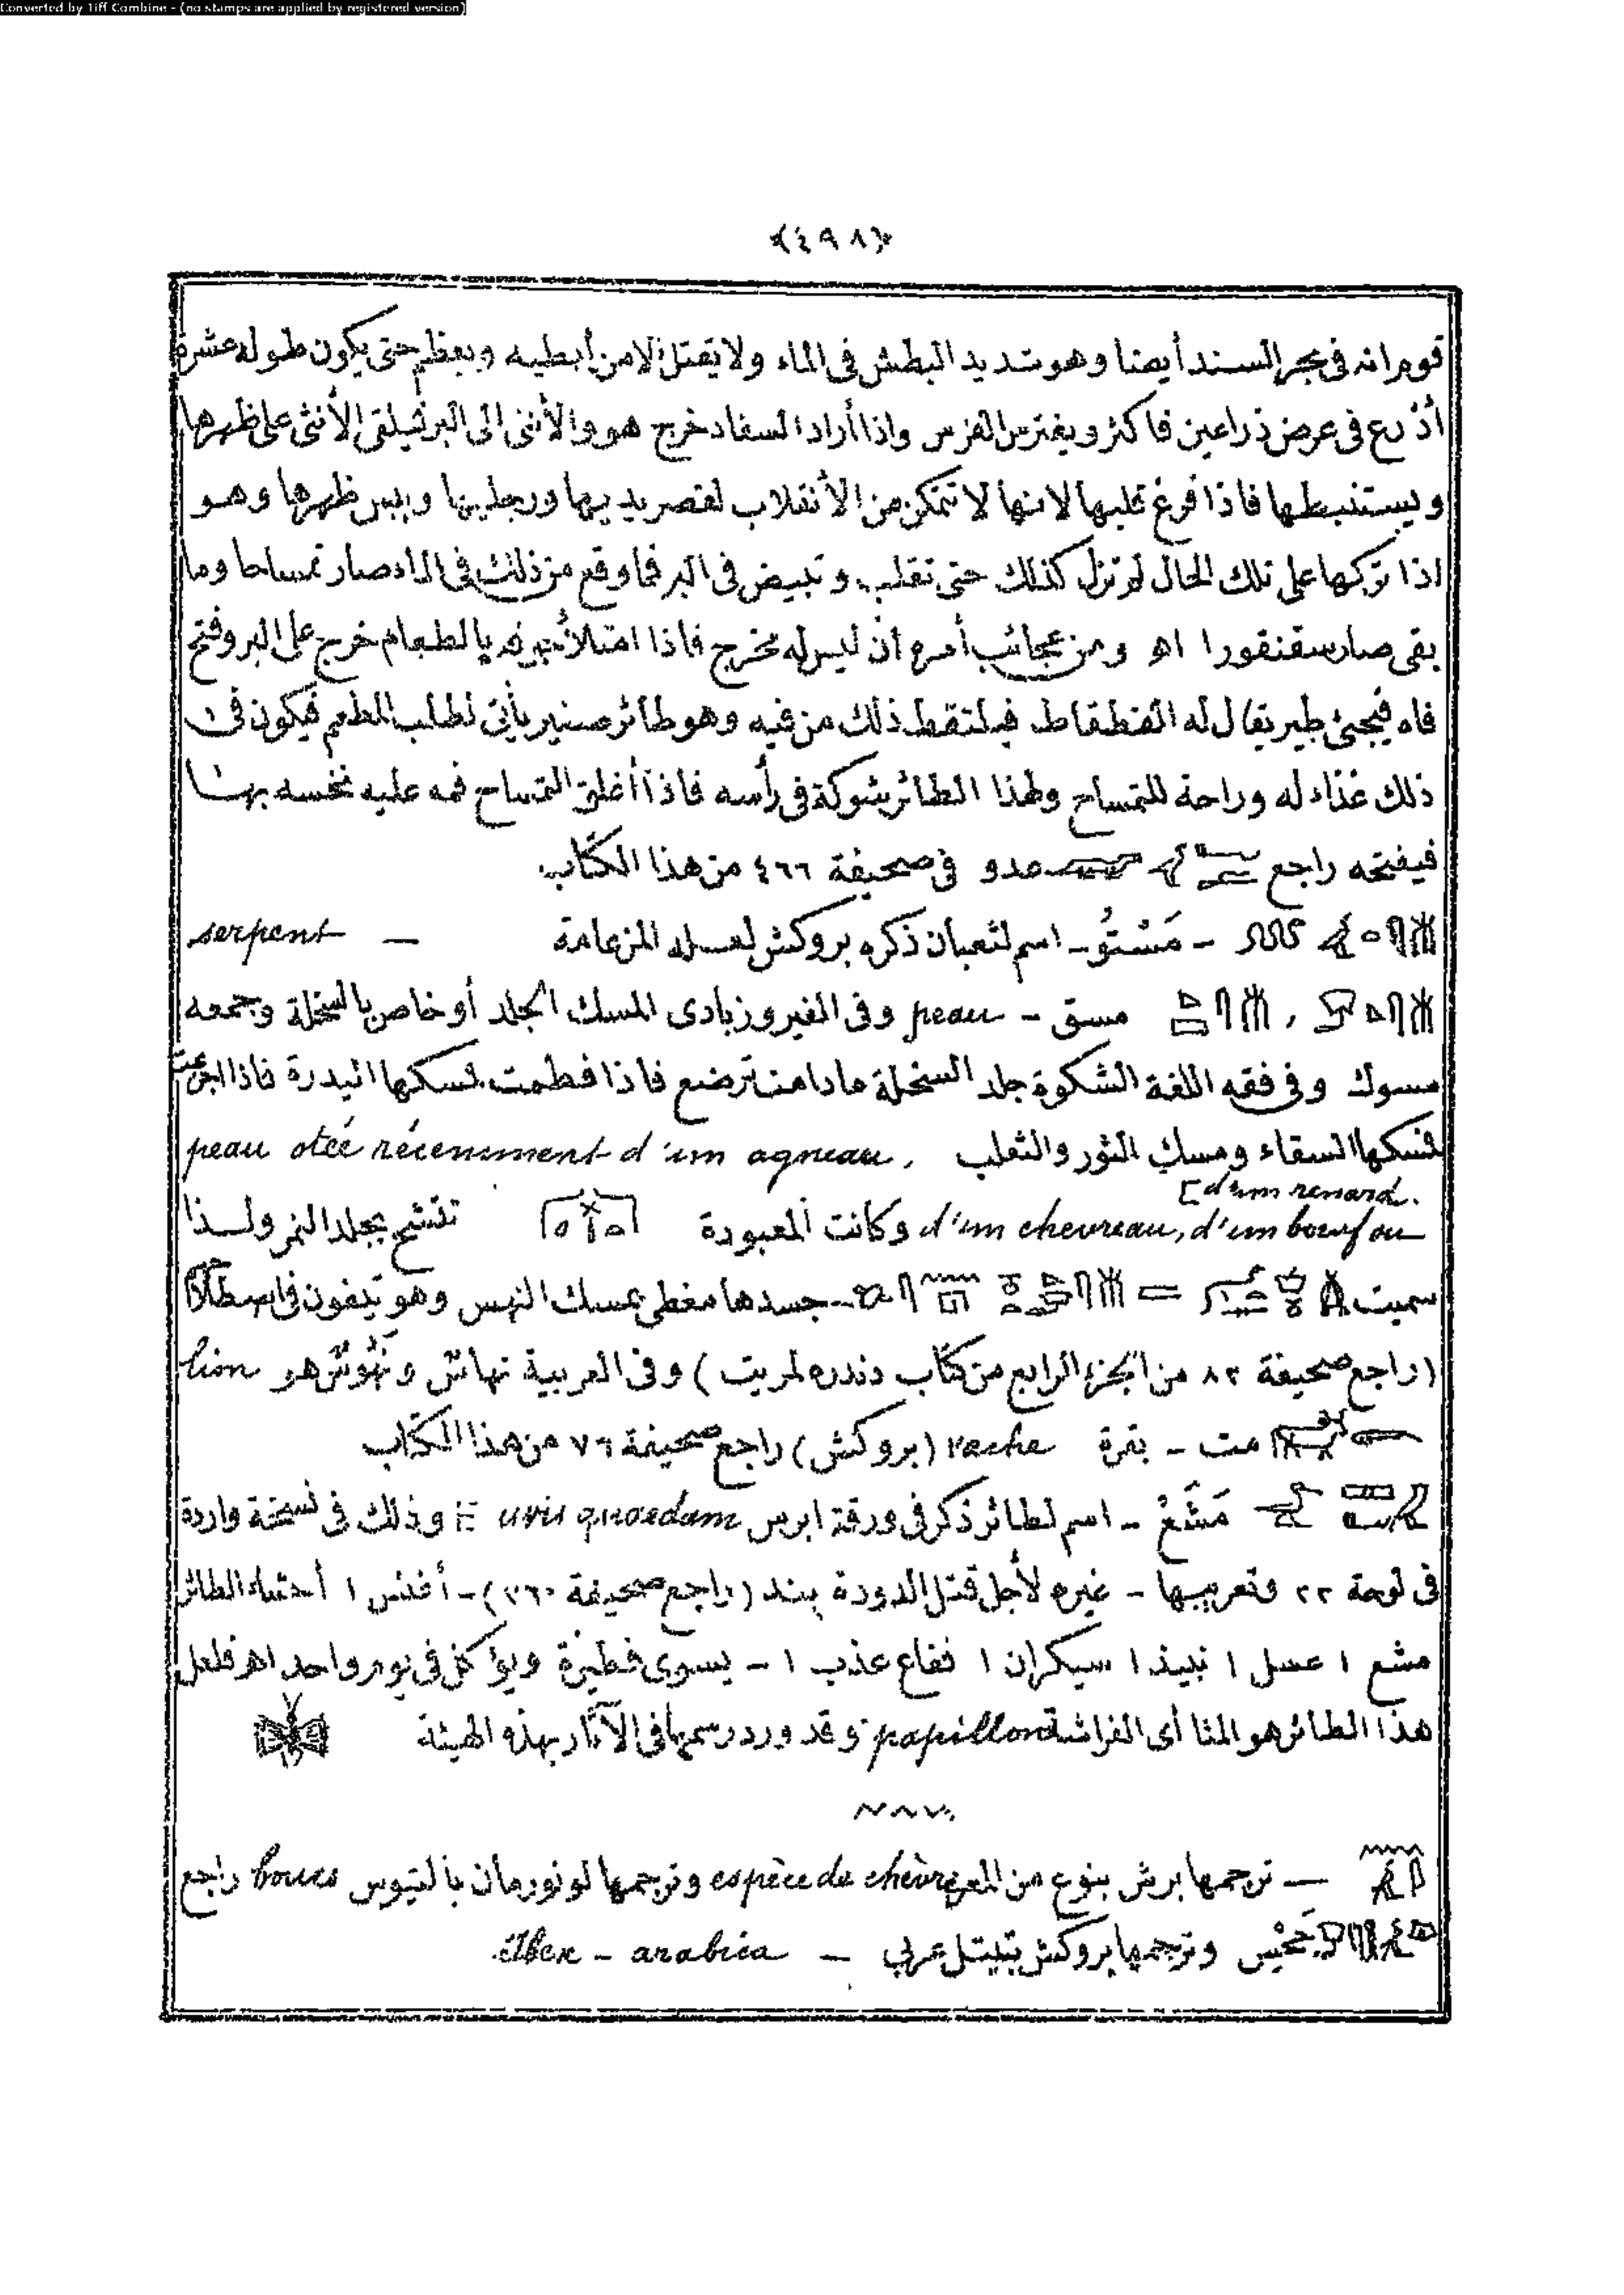 Converted by Tiff Combine - (no stamps are applied by registered version)
﴿٤٩٨﴾
قوم انه فى بحر السند أيضا وهو شديد البطش فى الماء ولا يقتل الا من أبطيه ويعظم حتى يكون طوله عشرة
أذرع فى عرض ذراعين فاكثر ويفترس الفرس واذا أراد السفاد خرج هو والأنثى الى البر فيلقى الأنثى على ظهرها
ويستنبطها فاذا فرغ قلبها لانها لا تتمكن من الأنقلاب لقصر يديها ورجليها ويبس ظهرها وهو
اذا تركها على تلك الحال لم تزل كذلك حتى تقلب وتبيض فى البر فما وقع من ذلك فى الماء صار تمساحا وما
بقى صار سقنقورا اه ومن عجائب أمره أن ليس له مخرج فاذا امتلأ جوفه بالطعام خرج على البر وفتح
فاه فيجئ طير يقال له القطقاط فيلتقط ذلك من فيه وهو طائر صغير يأتى لطلب المطعم فيكون فى
ذلك غذاء له وراحة للتمساح ولهذا الطائر شوكة فى رأسه فاذا أغلق التمساح فمه عليه نخسه بها
فيفتحه راجع عدو فى صحيفة ٤٦٦ من هذا الكتاب
– مَسْتُو – اسم لثعبان ذكره بروكش لعله المزعامة – serpent
مسق – peau وفى الفيروزبادى المسك الجلد أو خاص بالسخلة وجمعه
مسوك وفى فقه اللغة الشكوة جلد السخلة مادامت ترضع فاذا فطمت فمسكها البدرة فاذا اجذعت
فمسكها السقاء ومسك الثور والثعلب peau otée récemment d'un agneau,
[d'un renard.
d'un chevreau, d'un bœuf ou وكانت المعبودة تتشح بجلد النمر ولذا
سميت = – جسدها مغطى بمسك النهس وهو تيفون فى
(راجع صحيفة ٨٢ من الجزء الرابع من كتاب دندره لمريت) وفى العربية نهاس ونهوس هو lion
مت – بقرة vache (بروكش) راجع صحيفة ٧٦ من هذا الكتاب
مَشَعْ – اسم لطائر ذكر فى ورقة ابرس avis quaedam وذلك فى نسخة واردة
فى لوحة ٢٢ وتعريبها – غيره لأجل قتل الدودة بند (راجع صحيفة ٢٦٠) – أفنس ١ أحشاء الطائر
مشع ١ عسل ١ نبيذ ١ سيكران ١ فقاع عذب ١ – يسوى فطيرة ويؤكل فى يوم واحد اه فلعل
هذا الطائر هو المثا أى الفراشة papillon وقد ورد رسمها فى الآثار بهذه الهيئة
— ترجمها برش بنوع من المعز espèce de chèvre وترجمها لونورمان بالتيوس boucs راجع
نحيس وترجمها بروكش بتيتل عربى – ibex – arabica